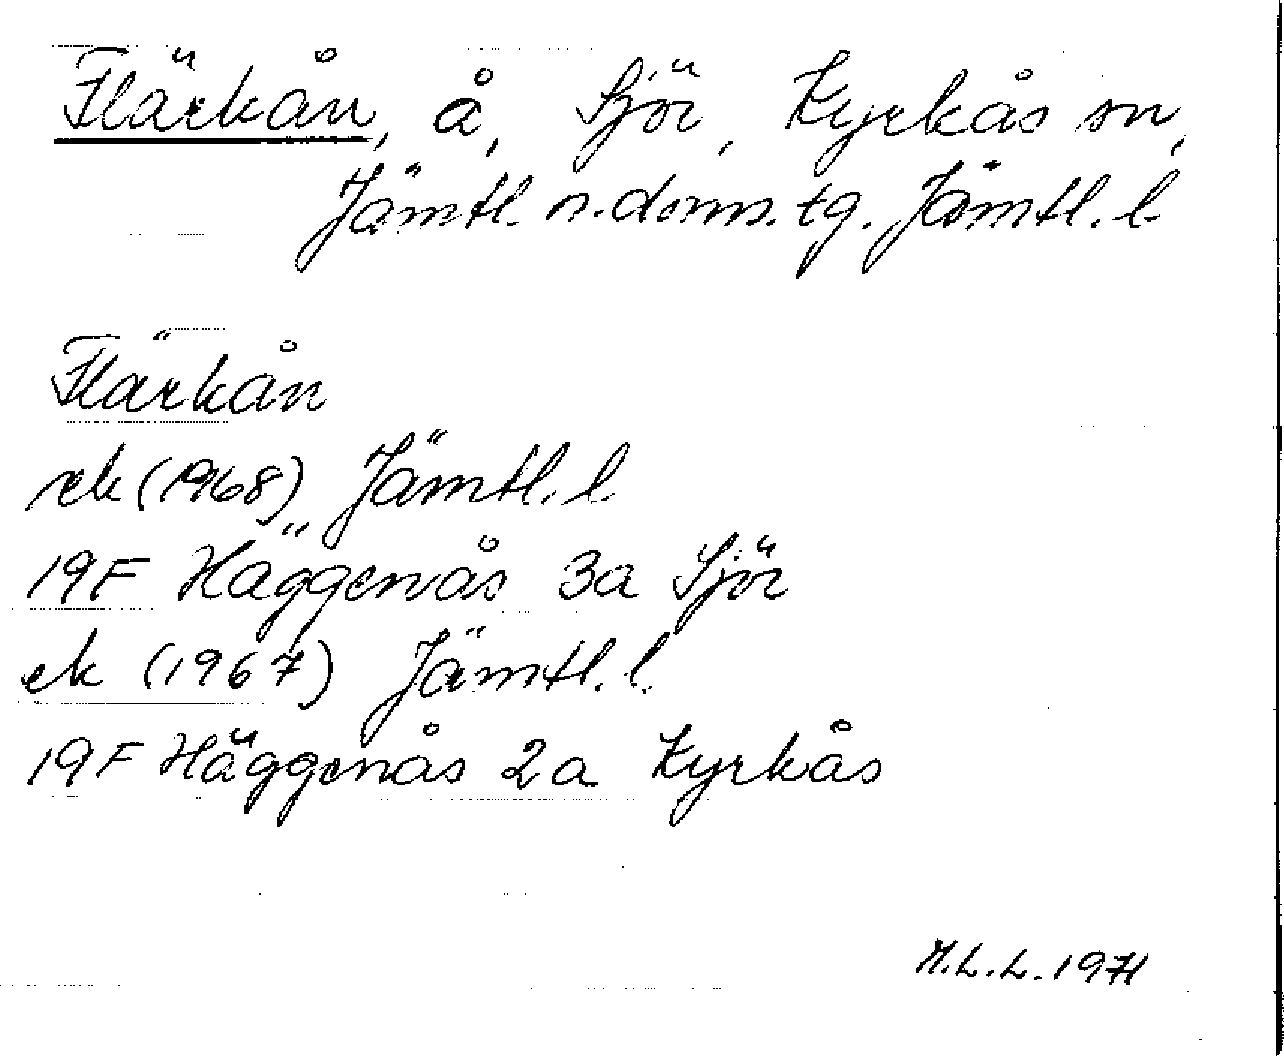 Flärkån, å, Sjör, Kyrkås sn,
Jämtl. n. doms. tg. Jämtl. l.
Flärkån
rek (1968) Jämtl. l.
19F Häggenås 3a Sjör
ek (1967) Jämtl. l.
19F Häggenås 2a Kyrkås
M.L.L. 1971